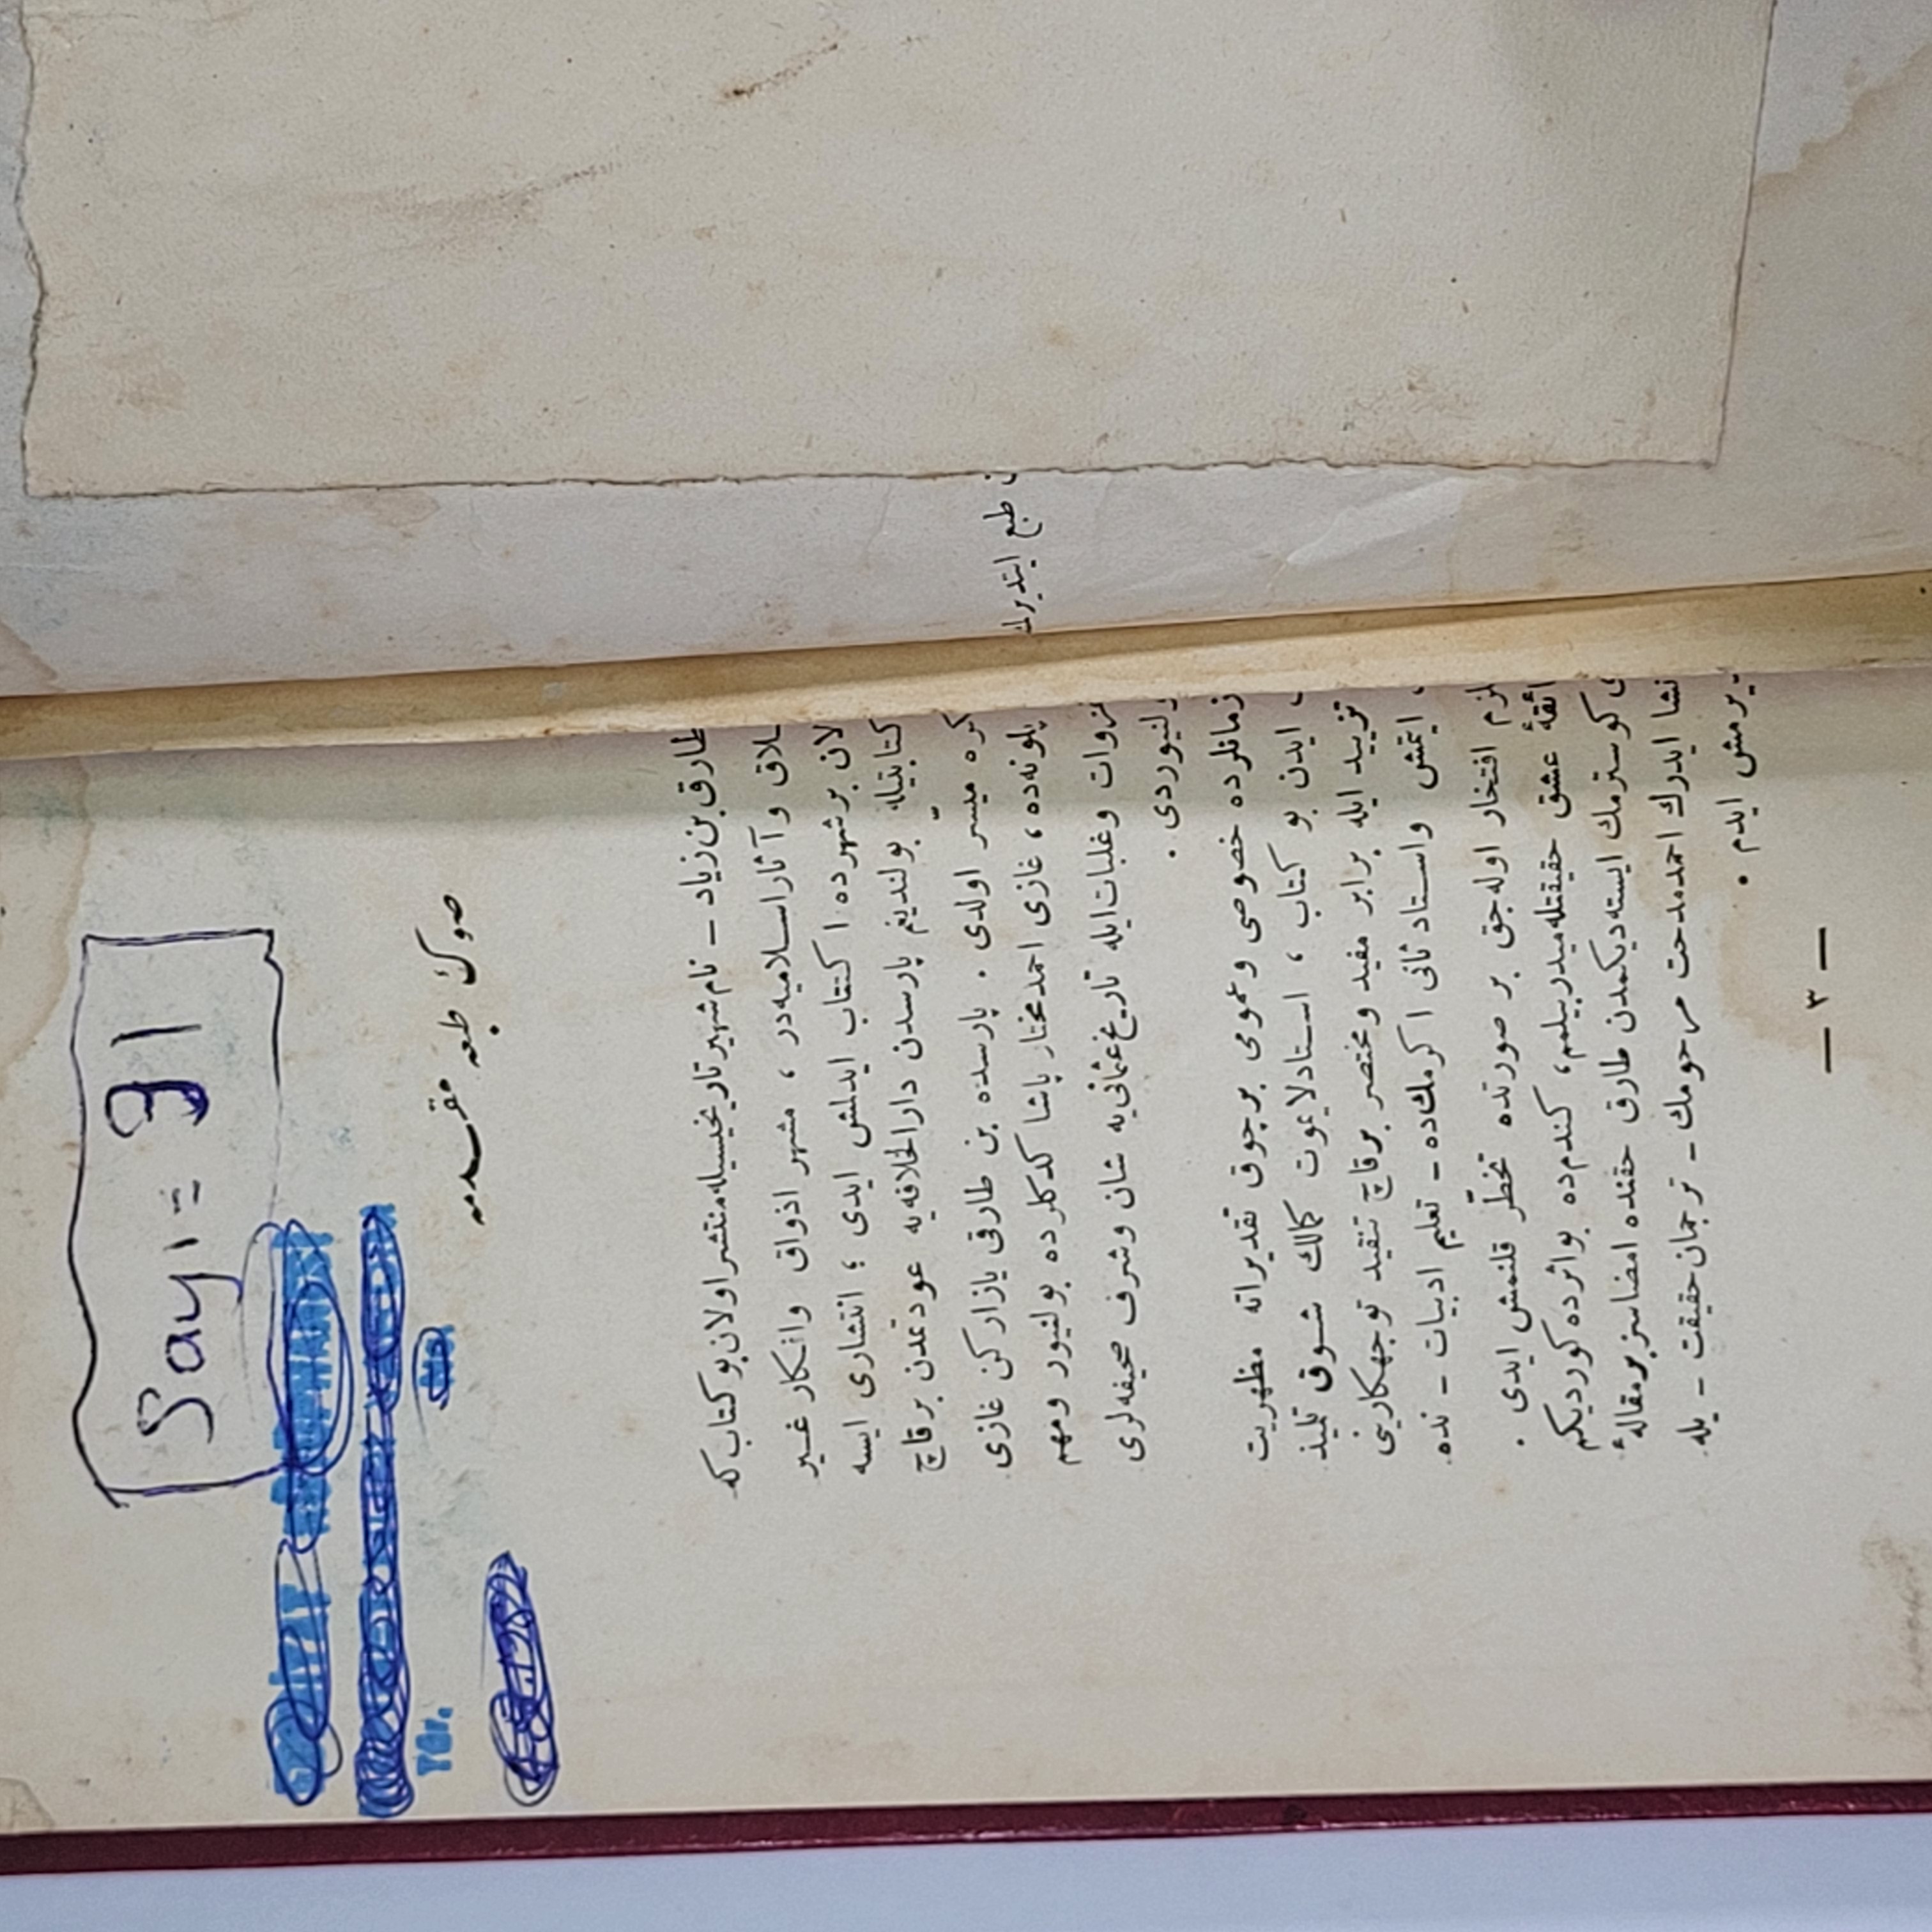 Sayı = 91
صوك طبعه مقدمه
طارق بن زیاد ـ نام شهیر تاریخیسیله منتشر اولان بو كتاب كه
لاق و آثار اسلامیه در ، مشهر اذواق وافكار غیر
لان بر شهرده ا كتتاب ایدلمش ایدی ؛ انتشاری ایسه
كتابتیله بولندیغم پارسدن دارالخلافه یه عودتمدن برقاچ
كره میسّر اولدی . پارسده بن طارقی یازاركن غازی
پلونه ده ، غازی احمد مختار پاشا كدكلرده بولنیور ومهم
غزوات وغلبات ایله تاریخ عثمانی یه شان وشرف صحیفه لری
ولنیوردی .
زمانلرده خصوصی وعمومی برچوق تقدیراته مظهریت
ایدن بو كتاب ، استاد لایموت كمالك شوق تلمیذ
تزیید ایله برابر مفید ومختصر برقاچ تنقید توجهكارینی
ایتمش واستاد ثانی اكرمك ده ـ تعلیم ادبیات ـ نده
لزم افتخار اوله جق بر صورتده تخطّر قلنمش ایدی .
ائقهٔ عشق حقیقتله میدر بیلمم ، كندم ده بو اثرده كوردیكم
ی كوسترمك ایسته دیكمدن طارق حقنده امضاسز بر مقالهٔ
نشا ایدرك احمد مدحت مرحومك ـ ترجمان حقیقت ـ یله
یرمش ایدم .
— ٣ —
طبع ایتدیرك